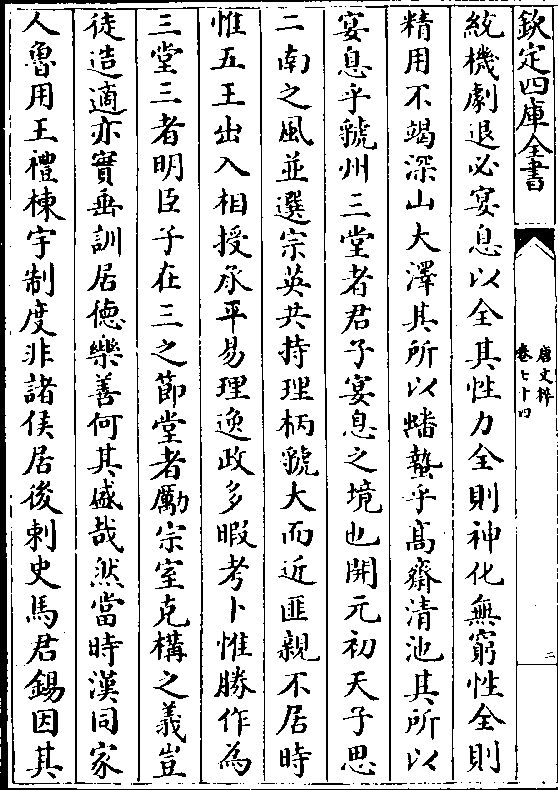 欽定四庫全書
唐文粹
卷七十四
二
統機劇退必宴息以全其性力全則神化無窮性全則
精用不竭深山大澤其所以蟠蟄乎高齋清池其所以
宴息乎虢州三堂者君子宴息之境也開元初天子思
二南之風並選宗英共持理柄虢大而近匪親不居時
惟五王出入相授承平易理逸政多暇考卜惟勝作為
三堂三者明臣子在三之節堂者勵宗室克構之義豈
徒造適亦實垂訓居徳樂善何其盛哉然當時漢同家
人魯用王禮棟宇制度非諸侯居後刺史馬君錫因其